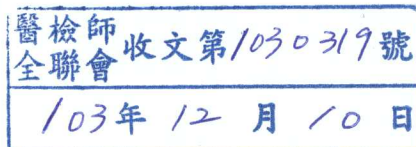 醫檢師全聯會收文第1030319號
103年12月10日